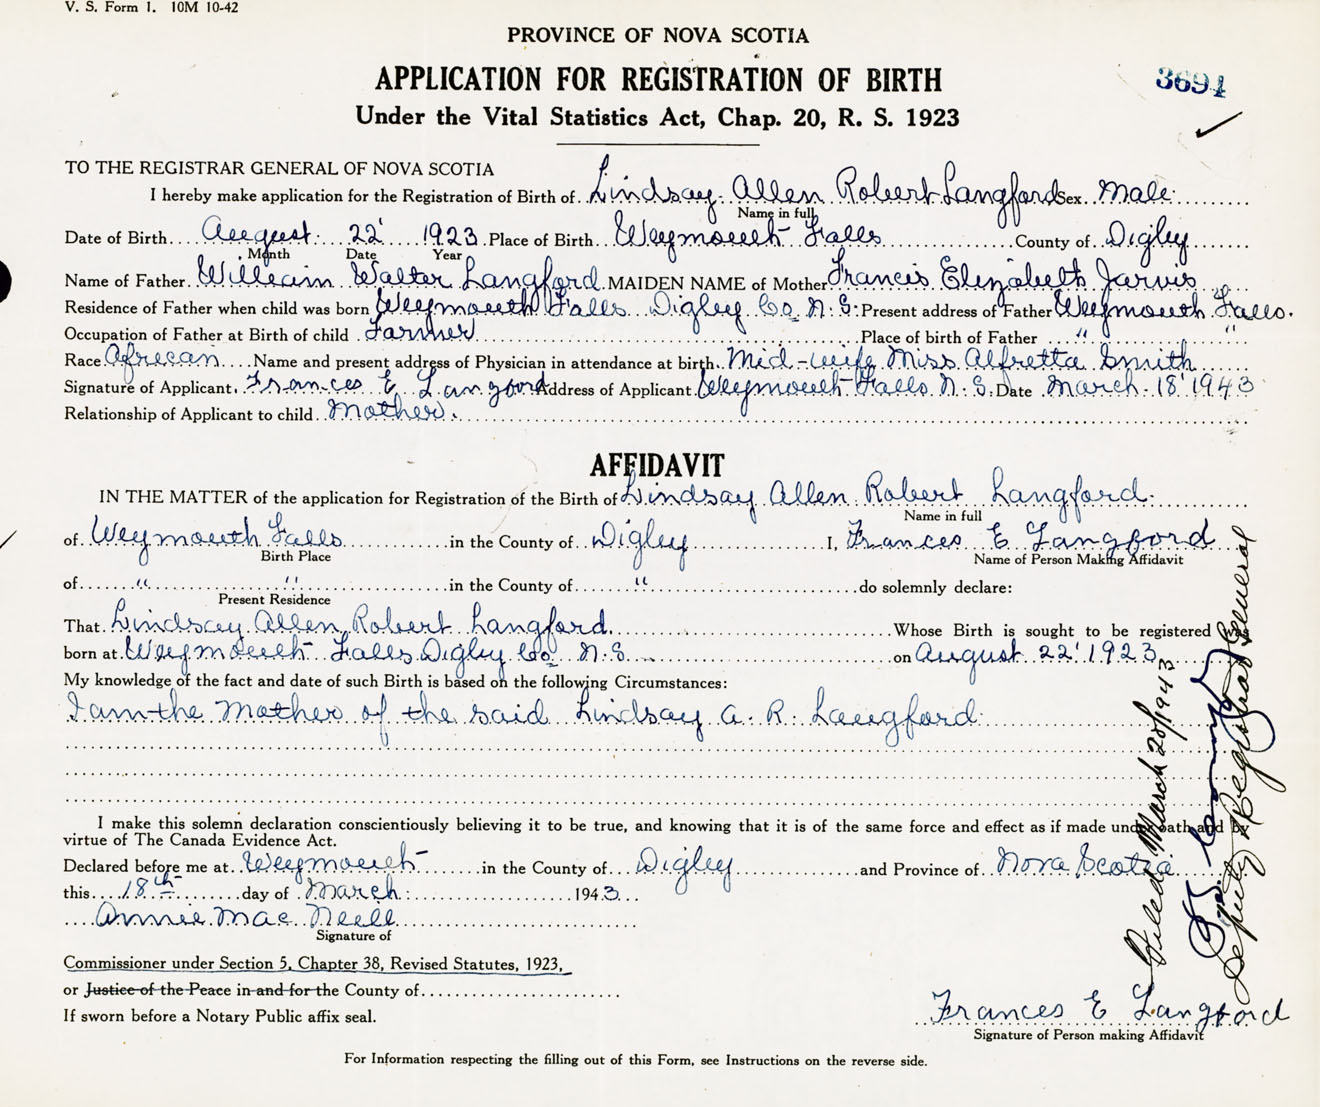 V. S. Form 1. 10M 10-42
PROVINCE OF NOVA SCOTIA
APPLICATION FOR REGISTRATION OF BIRTH
3694
Under the Vital Statistics Act, Chap. 20, R. S. 1923
TO THE REGISTRAR GENERAL OF NOVA SCOTIA
I hereby make application for the Registration of Birth of Lindsay Allen Robert Langford Sex Male
Name in full
Date of Birth August 22' 1923 Place of Birth Weymouth Falls County of Digby
Month Date Year
Name of Father William Walter Langford MAIDEN NAME of Mother Francis Elizabeth Jarvis
Residence of Father when child was born Weymouth Falls Digby Co N.S. Present address of Father Weymouth Falls.
Occupation of Father at Birth of child Farmer Place of birth of Father " "
Race African Name and present address of Physician in attendance at birth Mid-wife Miss Alfretta Smith
Signature of Applicant Frances E Langford Address of Applicant Weymouth Falls N.S. Date March 18' 1943
Relationship of Applicant to child Mother.
AFFIDAVIT
IN THE MATTER of the application for Registration of the Birth of Lindsay Allen Robert Langford
Name in full
of Weymouth Falls in the County of Digby I, Frances E Langford
Birth Place Name of Person Making Affidavit
of " " in the County of " do solemnly declare:
Present Residence
That Lindsay Allen Robert Langford Whose Birth is sought to be registered was
born at Weymouth Falls Digby Co N.S. on August 22' 1923
My knowledge of the fact and date of such Birth is based on the following Circumstances:
I am the Mother of the said Lindsay A. R. Langford
I make this solemn declaration conscientiously believing it to be true, and knowing that it is of the same force and effect as if made under oath and by
virtue of The Canada Evidence Act.
Declared before me at Weymouth in the County of Digby and Province of Nova Scotia
this 18th day of March 1943
Annie Mac Neill
Signature of
Commissioner under Section 5, Chapter 38, Revised Statutes, 1923,
or Justice of the Peace in and for the County of
If sworn before a Notary Public affix seal.
Frances E Langford
Signature of Person making Affidavit
For Information respecting the filling out of this Form, see Instructions on the reverse side.
Filed March 20/1943
Deputy Registrar General